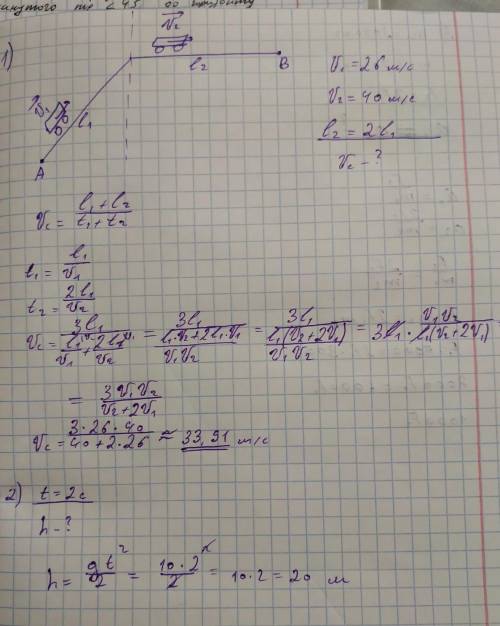 1)
V₂
l₂
B
V₁
l₁
A
V₁ = 26 м/с
V₂ = 40 м/с
l₂ = 2l₁
Vc - ?
Vc = (l₁ + l₂)/(t₁ + t₂)
t₁ = l₁/V₁
t₂ = 2l₁/V₂
Vc = 3l₁/(l₁/V₁ + 2l₁/V₂) = 3l₁/((l₁·V₂ + 2l₁·V₁)/(V₁V₂)) = 3l₁/(l₁(V₂ + 2V₁)/(V₁V₂)) = 3l₁ · V₁V₂/(l₁(V₂ + 2V₁))
= 3V₁V₂/(V₂ + 2V₁)
Vc = (3·26·40)/(40 + 2·26) ≈ 33,91 м/с
2) t = 2с
h - ?
h = gt²/2 = 10·2²/2 = 10·2 = 20 м